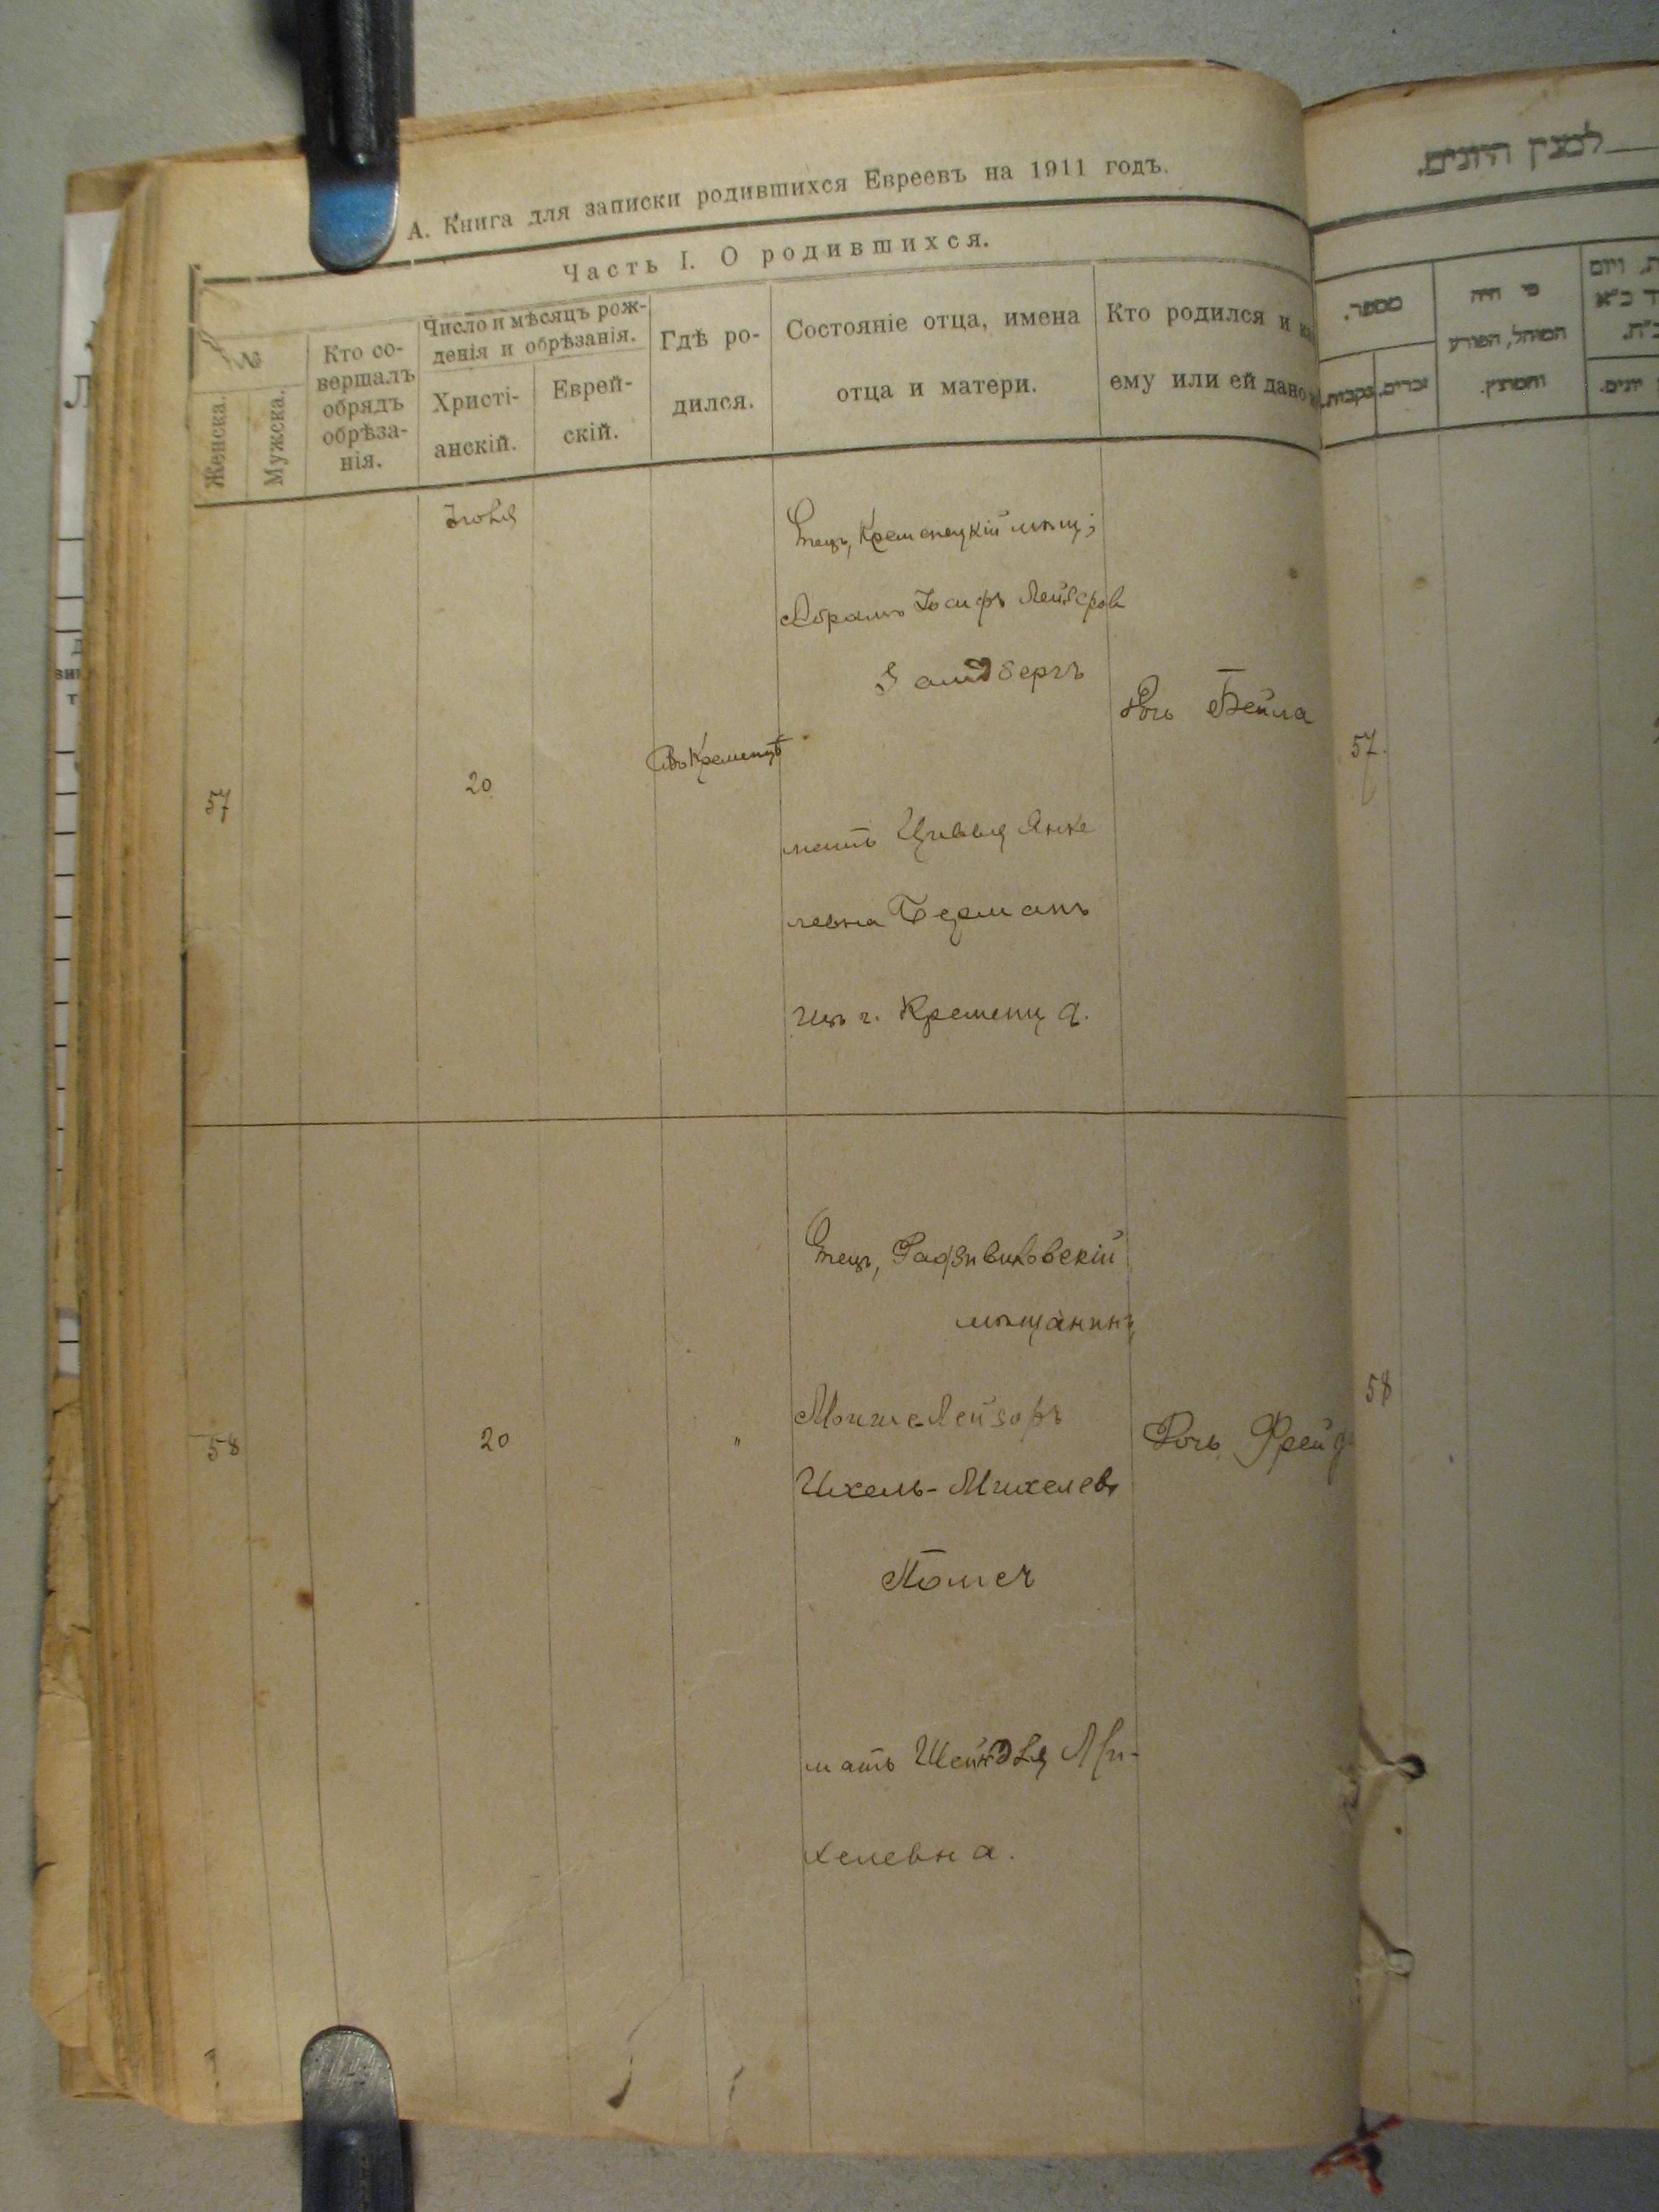 А. Книга для записки родившихся Евреевъ на 1911 годъ.
Часть I. О родившихся.
№
Женска.
Мужска.
Кто со-
вершалъ
обрядъ
обрѣза-
нія.
Число и мѣсяцъ рож-
денія и обрѣзанія.
Христі-
анскій.
Еврей-
скій.
Гдѣ ро-
дился.
Состояніе отца, имена
отца и матери.
Кто родился и
ему или ей дано
Іюля
57
20
Въ Кременцѣ
Отецъ, Кременецкій мѣщ;
Абрамъ Іосифъ Лейзеров
Замдбергъ
мать Цивья Янке
левна Берманъ
изъ г. Кременца.
Дочь Бейла
58
20
"
Отецъ, Радзивиловскій
мѣщанинъ
Мошко Лейзоръ
Ихель-Михелевъ
мать Шейндля Ми-
хелевна.
Дочь Фрейд
למנין היונים.
מספר.
נקבות.
זכרים.
מי היה
המוהל, הפורע
והמוצץ.
ויום
57.
58